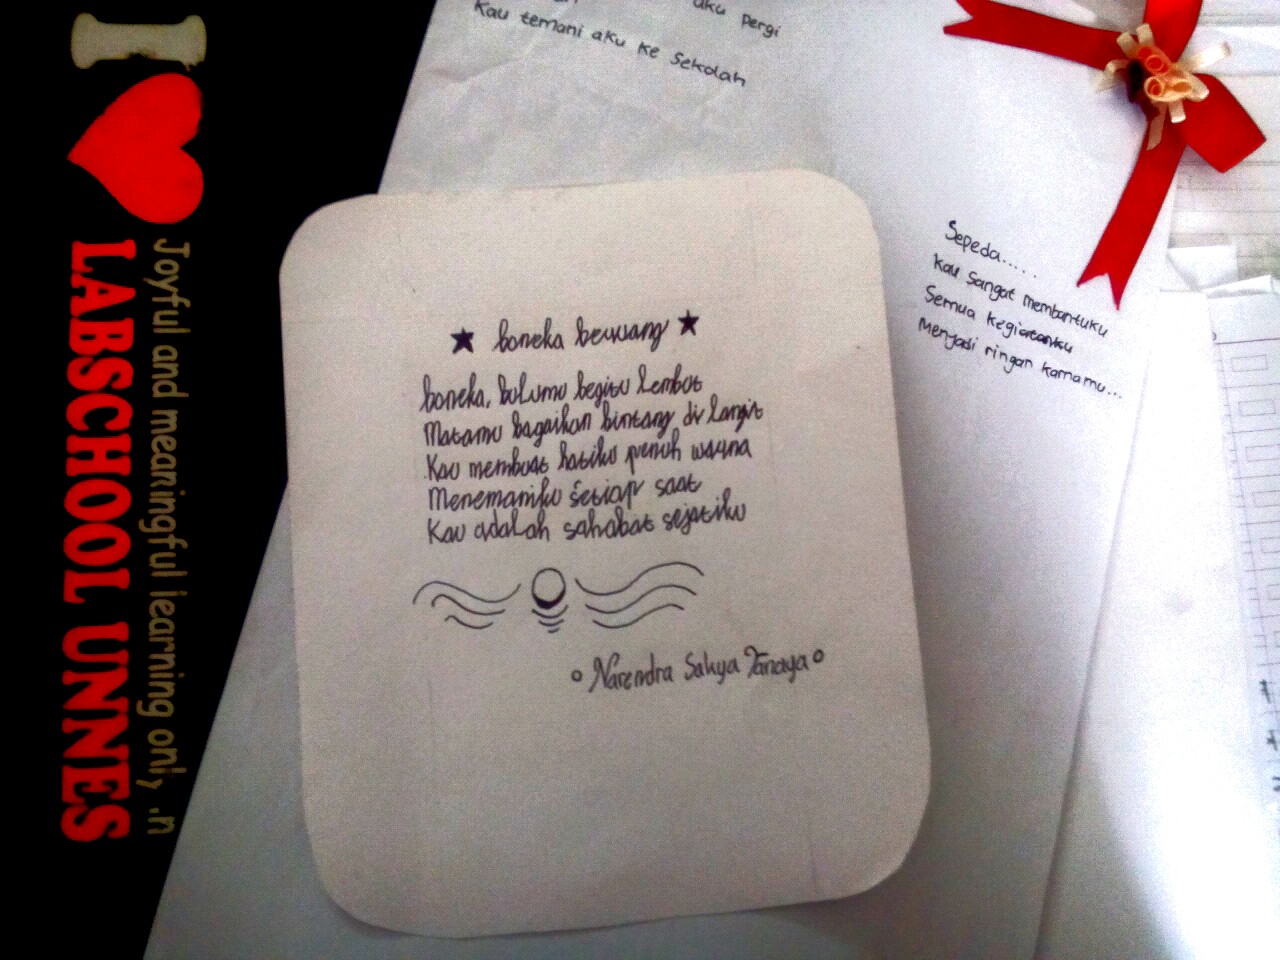 I
LABSCHOOL UNNES
Joyful and meaningful learning only .n
aku pergi
Kau temani aku ke Sekolah
Sepeda.....
Kau Sangat membantuku
Semua Kegiatanku
Menjadi ringan karnamu...
boneka beruang
boneka, bulumu begitu lembut
Matamu bagaikan bintang di langit
Kau membuat hatiku penuh warna
Menemaniku setiap saat
Kau adalah sahabat sejatiku
Narendra Sahya Tanaya